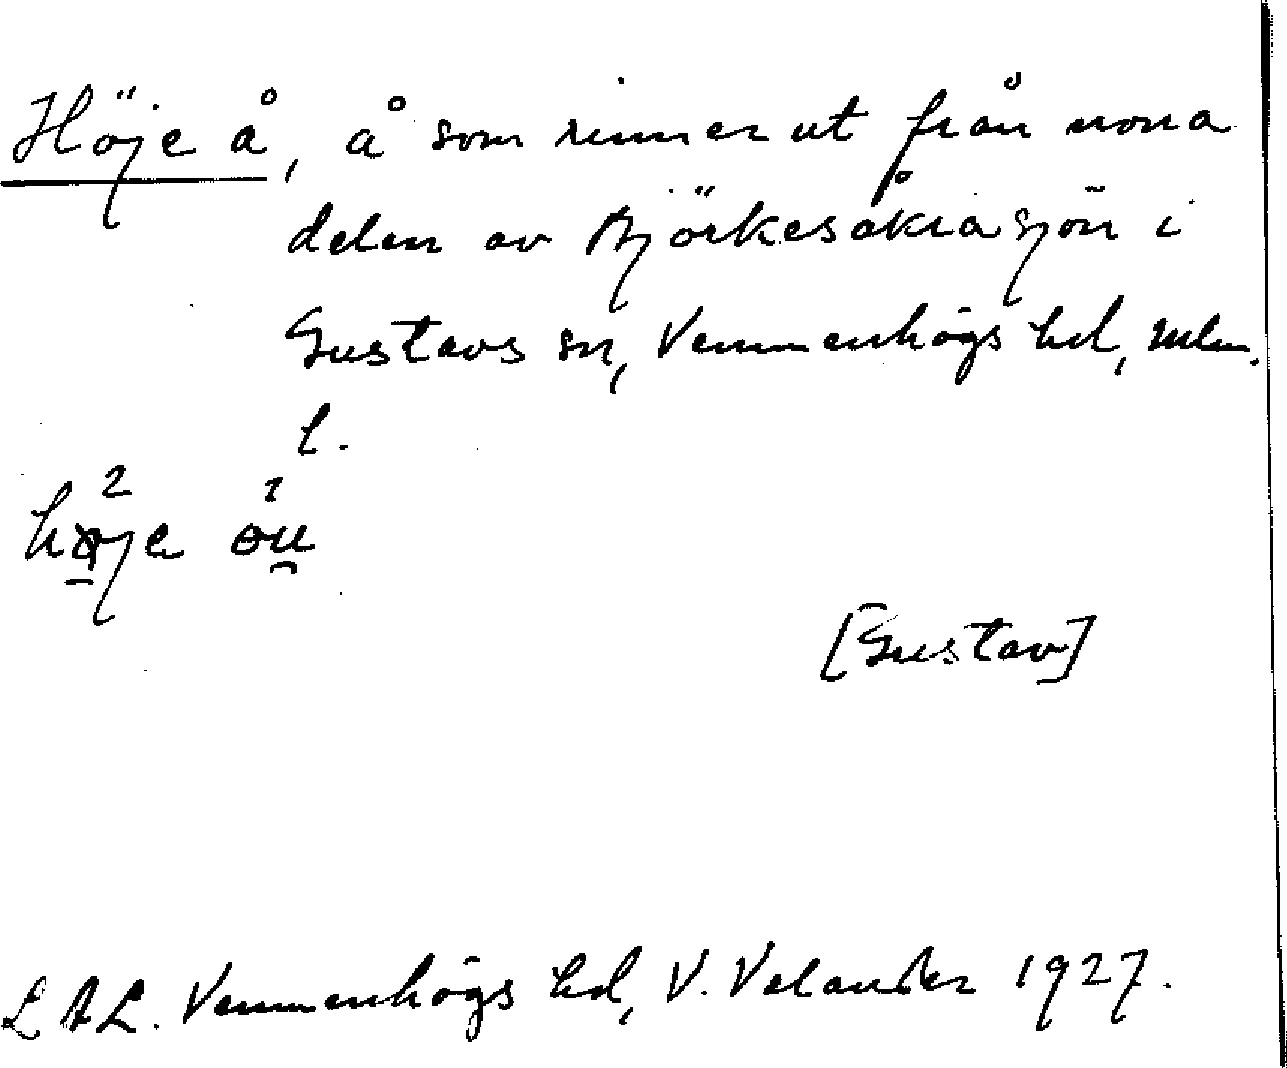 Höje å, å som rinner ut från norra
delen av Björkesåkrasjön i
Gustavs sn, Vemmenhögs hd, Mlm.
l.
2 1
høje ou
[Gustav]
LAL. Vemmenhögs hd, V. Velander 1927.